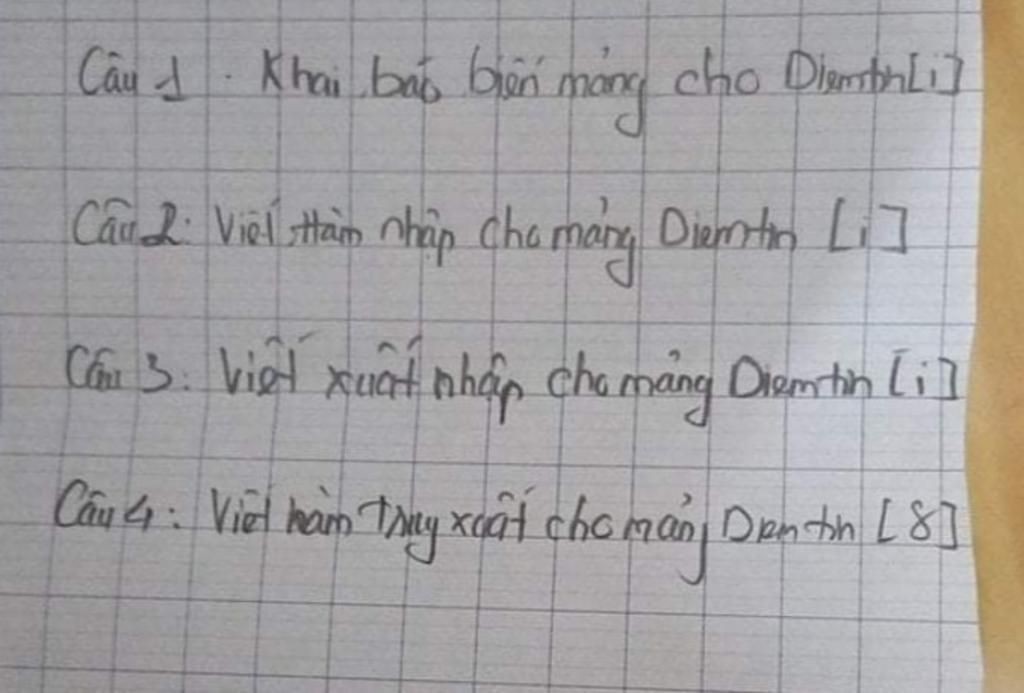 Câu 1. Khai báo biến mảng cho Diemtin[i]
Câu 2: Viết Hàm nhập cho mảng Diemtin [i]
Câu 3: Viết xuất nhập cho mảng Diemtin [i]
Câu 4: Viết hàm Truy xuất cho mảng Diemtin [8]